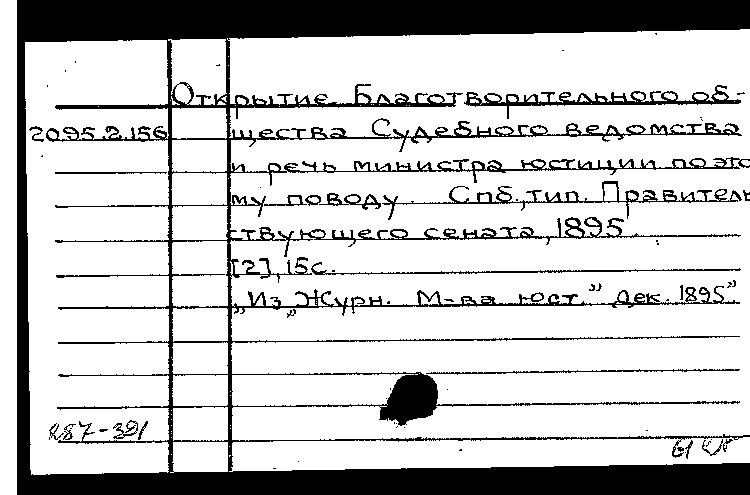 Открытие Благотворительного об-
2095.2.156 щества Судебного ведомства
и речь министра юстиции поэто
му поводу. Спб., тип. Правитель
ствующего сената, 1895.
[2], 15с.
„Из „Журн. М-ва юст.” дек. 1895”
К87-391